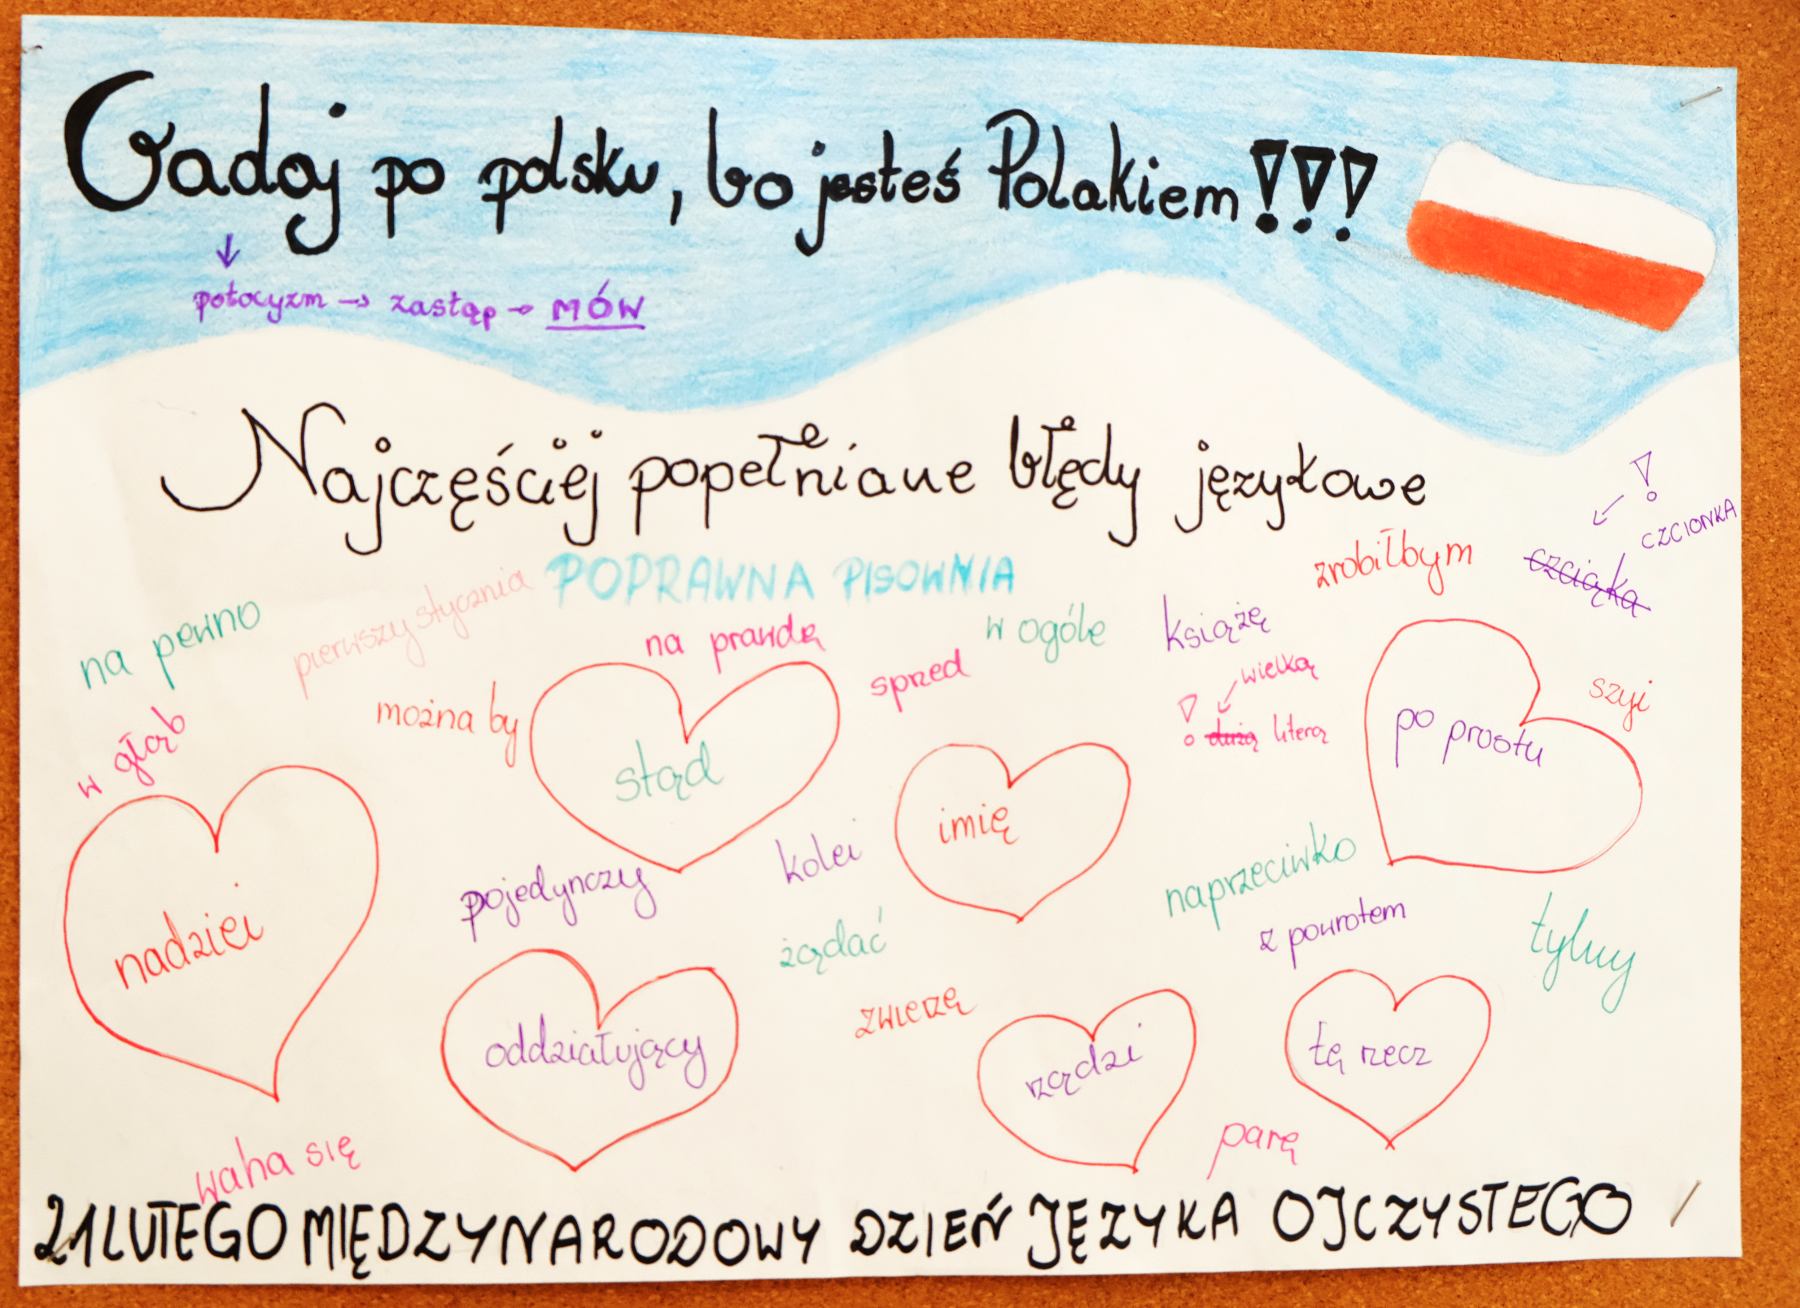 Gadaj po polsku, bo jesteś Polakiem!!!
↓
potocyzm → zastąp → MÓW
Najczęściej popełniane błędy językowe
POPRAWNA PISOWNIA
zrobiłbym
!
czciąka
CZCIONKA
na pewno
pierwszy stycznia
na prawdę
w ogóle
książę
sprzed
! dużą literą
wielką
szyi
w głąb
można by
stąd
imię
po prostu
nadziei
pojedynczy
kolei
naprzeciwko
żądać
z powrotem
tylny
oddziałujący
zwierzę
rządzi
tę rzecz
waha się
parę
21 LUTEGO MIĘDZYNARODOWY DZIEŃ JĘZYKA OJCZYSTEGO